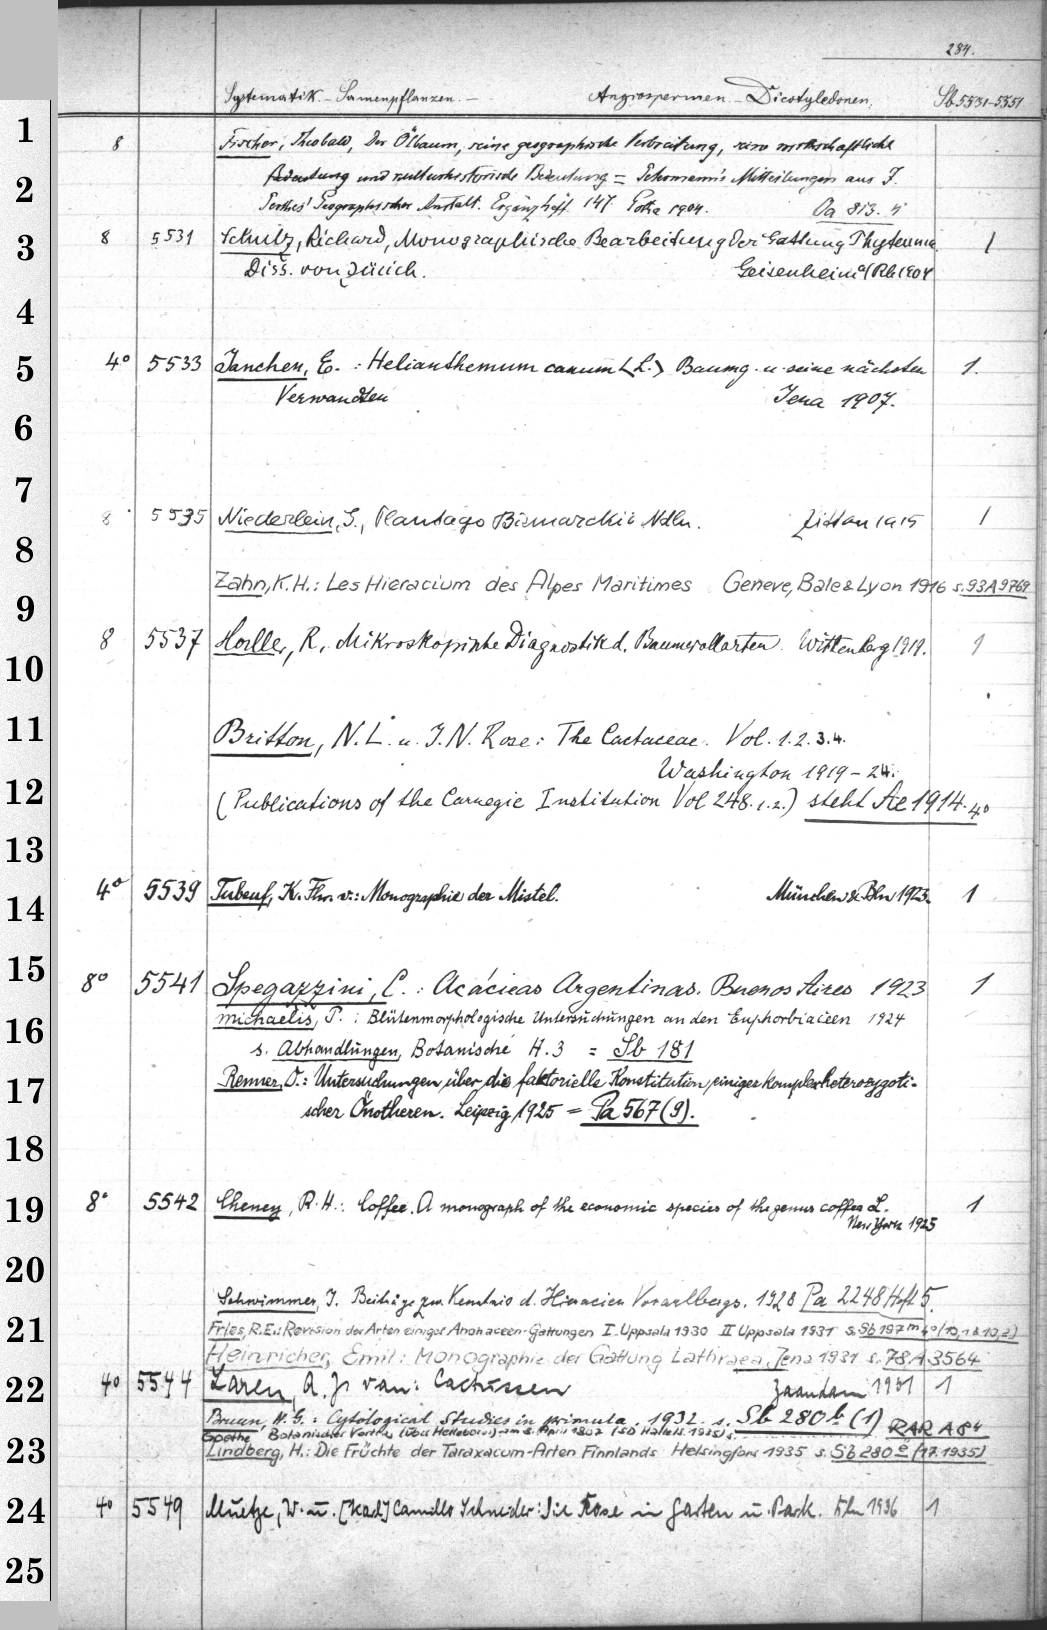 284.
Systematik. - Samenpflanzen. - Angiospermen. - Dicotyledonen. Sb 5531-5551
1
8 Fischer, Theobald, Der Ölbaum, seine geographische Verbreitung, seine wirtschaftliche
2
Bedeutung und kulturhistorische Bedeutung = Petermann's Mitteilungen aus J.
Perthes' Geographischer Anstalt. Ergänzheft 147. Gotha 1904. Oa 813. 4
3
8 5531 Schulz, Richard, Monographische Bearbeitung der Gattung Phyteuma 1
Diss. von Zürich. Geisenheim a/Rh 1904
4
5
4° 5533 Janchen, E. : Helianthemum canum (L.) Baumg. u. seine nächsten 1.
Verwandten Jena 1907.
6
7
8 5535 Niederlein, G., Plantago Bismarckii Ndln. Zittau 1915 1
8
Zahn, K.H.: Les Hieracium des Alpes Maritimes Geneve, Bale & Lyon 1916 s. 93A9769
9
8 5537 Haller, R. Mikroskopische Diagnostik d. Baumwollarten. Wittenberg 1919. 1
10
11
Britton, N. L. u. J. N. Rose: The Cactaceae. Vol. 1. 2. 3. 4.
Washington 1919 - 24.
12
(Publications of the Carnegie Institution Vol 248. 1. 2.) steht Ae 1914. 4°
13
14
4° 5539 Tubeuf, K. Fhr. v.: Monographie der Mistel. München & Bln 1923. 1
15
8° 5541 Spegazzini, C. : Acácieas Argentinas. Buenos Aires 1923 1
Michaelis, P. : Blütenmorphologische Untersuchungen an den Euphorbiaceen 1924
16
s. Abhandlungen, Botanische H. 3 = Sb 181
17
Renner, O.: Untersuchungen über die faktorielle Konstitution einiger komplexheterozygoti-
scher Önotheren. Leipzig 1925 = Pa 567 (9).
18
19
8° 5542 Cheney, R. H. : Coffee. A monograph of the economic species of the genus coffea L. 1
New York 1925
20
Schwimmer, J. Beiträge zur Kenntnis d. Hieracien Vorarlbergs. 1928 Pa 2248, Heft 5.
21
Fries, R.E.: Revision der Arten einiger Anonaceen-Gattungen I. Uppsala 1930 II Uppsala 1931 s. Sb 197 m 4° (10,1 & 10,2)
Heinricher, Emil: Monographie der Gattung Lathraea. Jena 1931 s. 78. A. 3564
22
4° 5544 Laren, A. J. van: Cactussen Zaandam 1931 1
Bruun, H. G. : Cytological Studies in Primula. 1932. s. Sb 280 b (1)
Goethe Botanischer Vortrag (über Helleborus) am 8. April 1807 s. RAR A 84
23
Lindberg, H.: Die Früchte der Taraxacum-Arten Finnlands Helsingfors 1935 s. Sb 280 e (17. 1935)
24
4° 5549 Muetze, W. u. [Karl] Camillo Schneider: Die Rose in Garten u. Park. Bln 1936 1
25